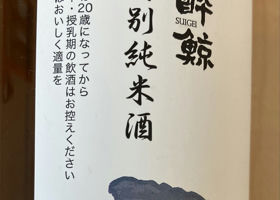 酔鯨
SUIGEI
別純米酒
20歳になってから
・授乳期の飲酒はお控えください
はおいしく適量を